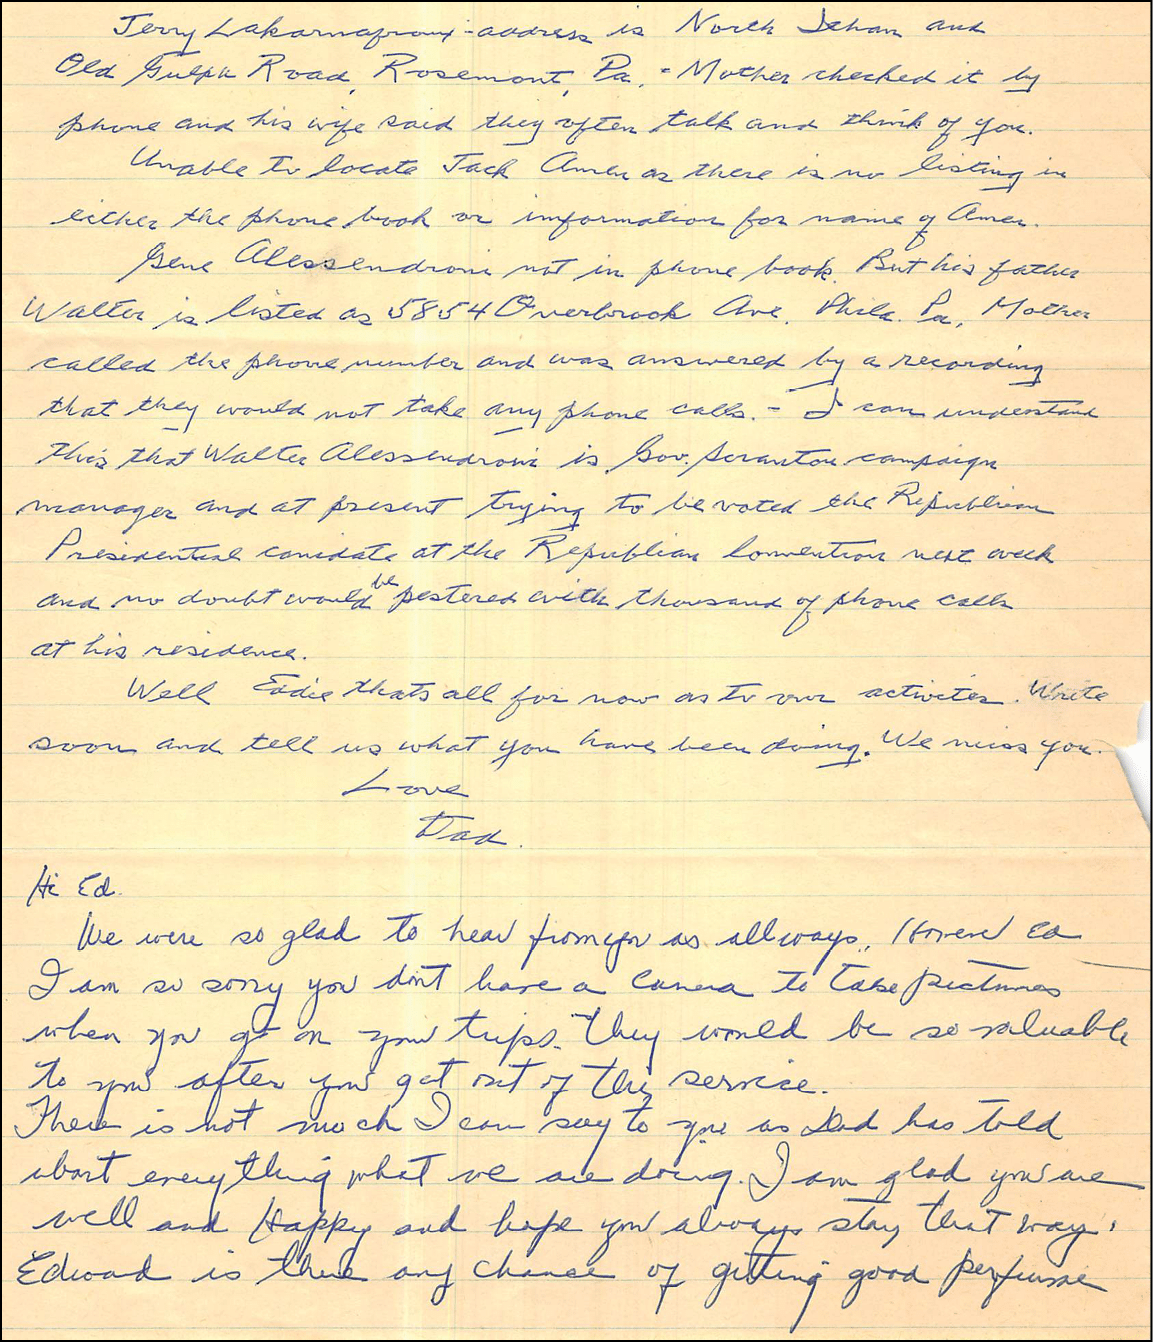 Jerry - address is North Ithan and
Old Gulph Road, Rosemont, Pa. - Mother checked it by
phone and his wife said they often talk and think of you.
Unable to locate Jack Amer as there is no listing in
either the phone book or information for name of Amer.
Gene Alessendroni not in phone book. But his father
Walter is listed as 5854 Overbrook Ave. Phila. Pa. Mother
called the phone number and was answered by a recording
that they would not take any phone calls. - I can understand
this that Walter Alessendroni is Gov. Scranton campaign
manager and at present trying to be voted the Republican
Presidential canidate at the Republian Convention next week
and no doubt would be pestered with thousand of phone calls
at his residence.
Well Eddie thats all for now as to our activites. Write
soon and tell us what you have been doing. We miss you.
Love
Dad.
Hi Ed.
We were so glad to hear from you as allways. Ed
I am so sorry you don't have a Camera to take pictures
when you go on your trips. They would be so valuable
to you after you get out of the service.
There is not much I can say to you as Dad has told
about everything what we are doing. I am glad you are
well and Happy and hope you always stay that way.
Edward is there any chance of getting good perfume